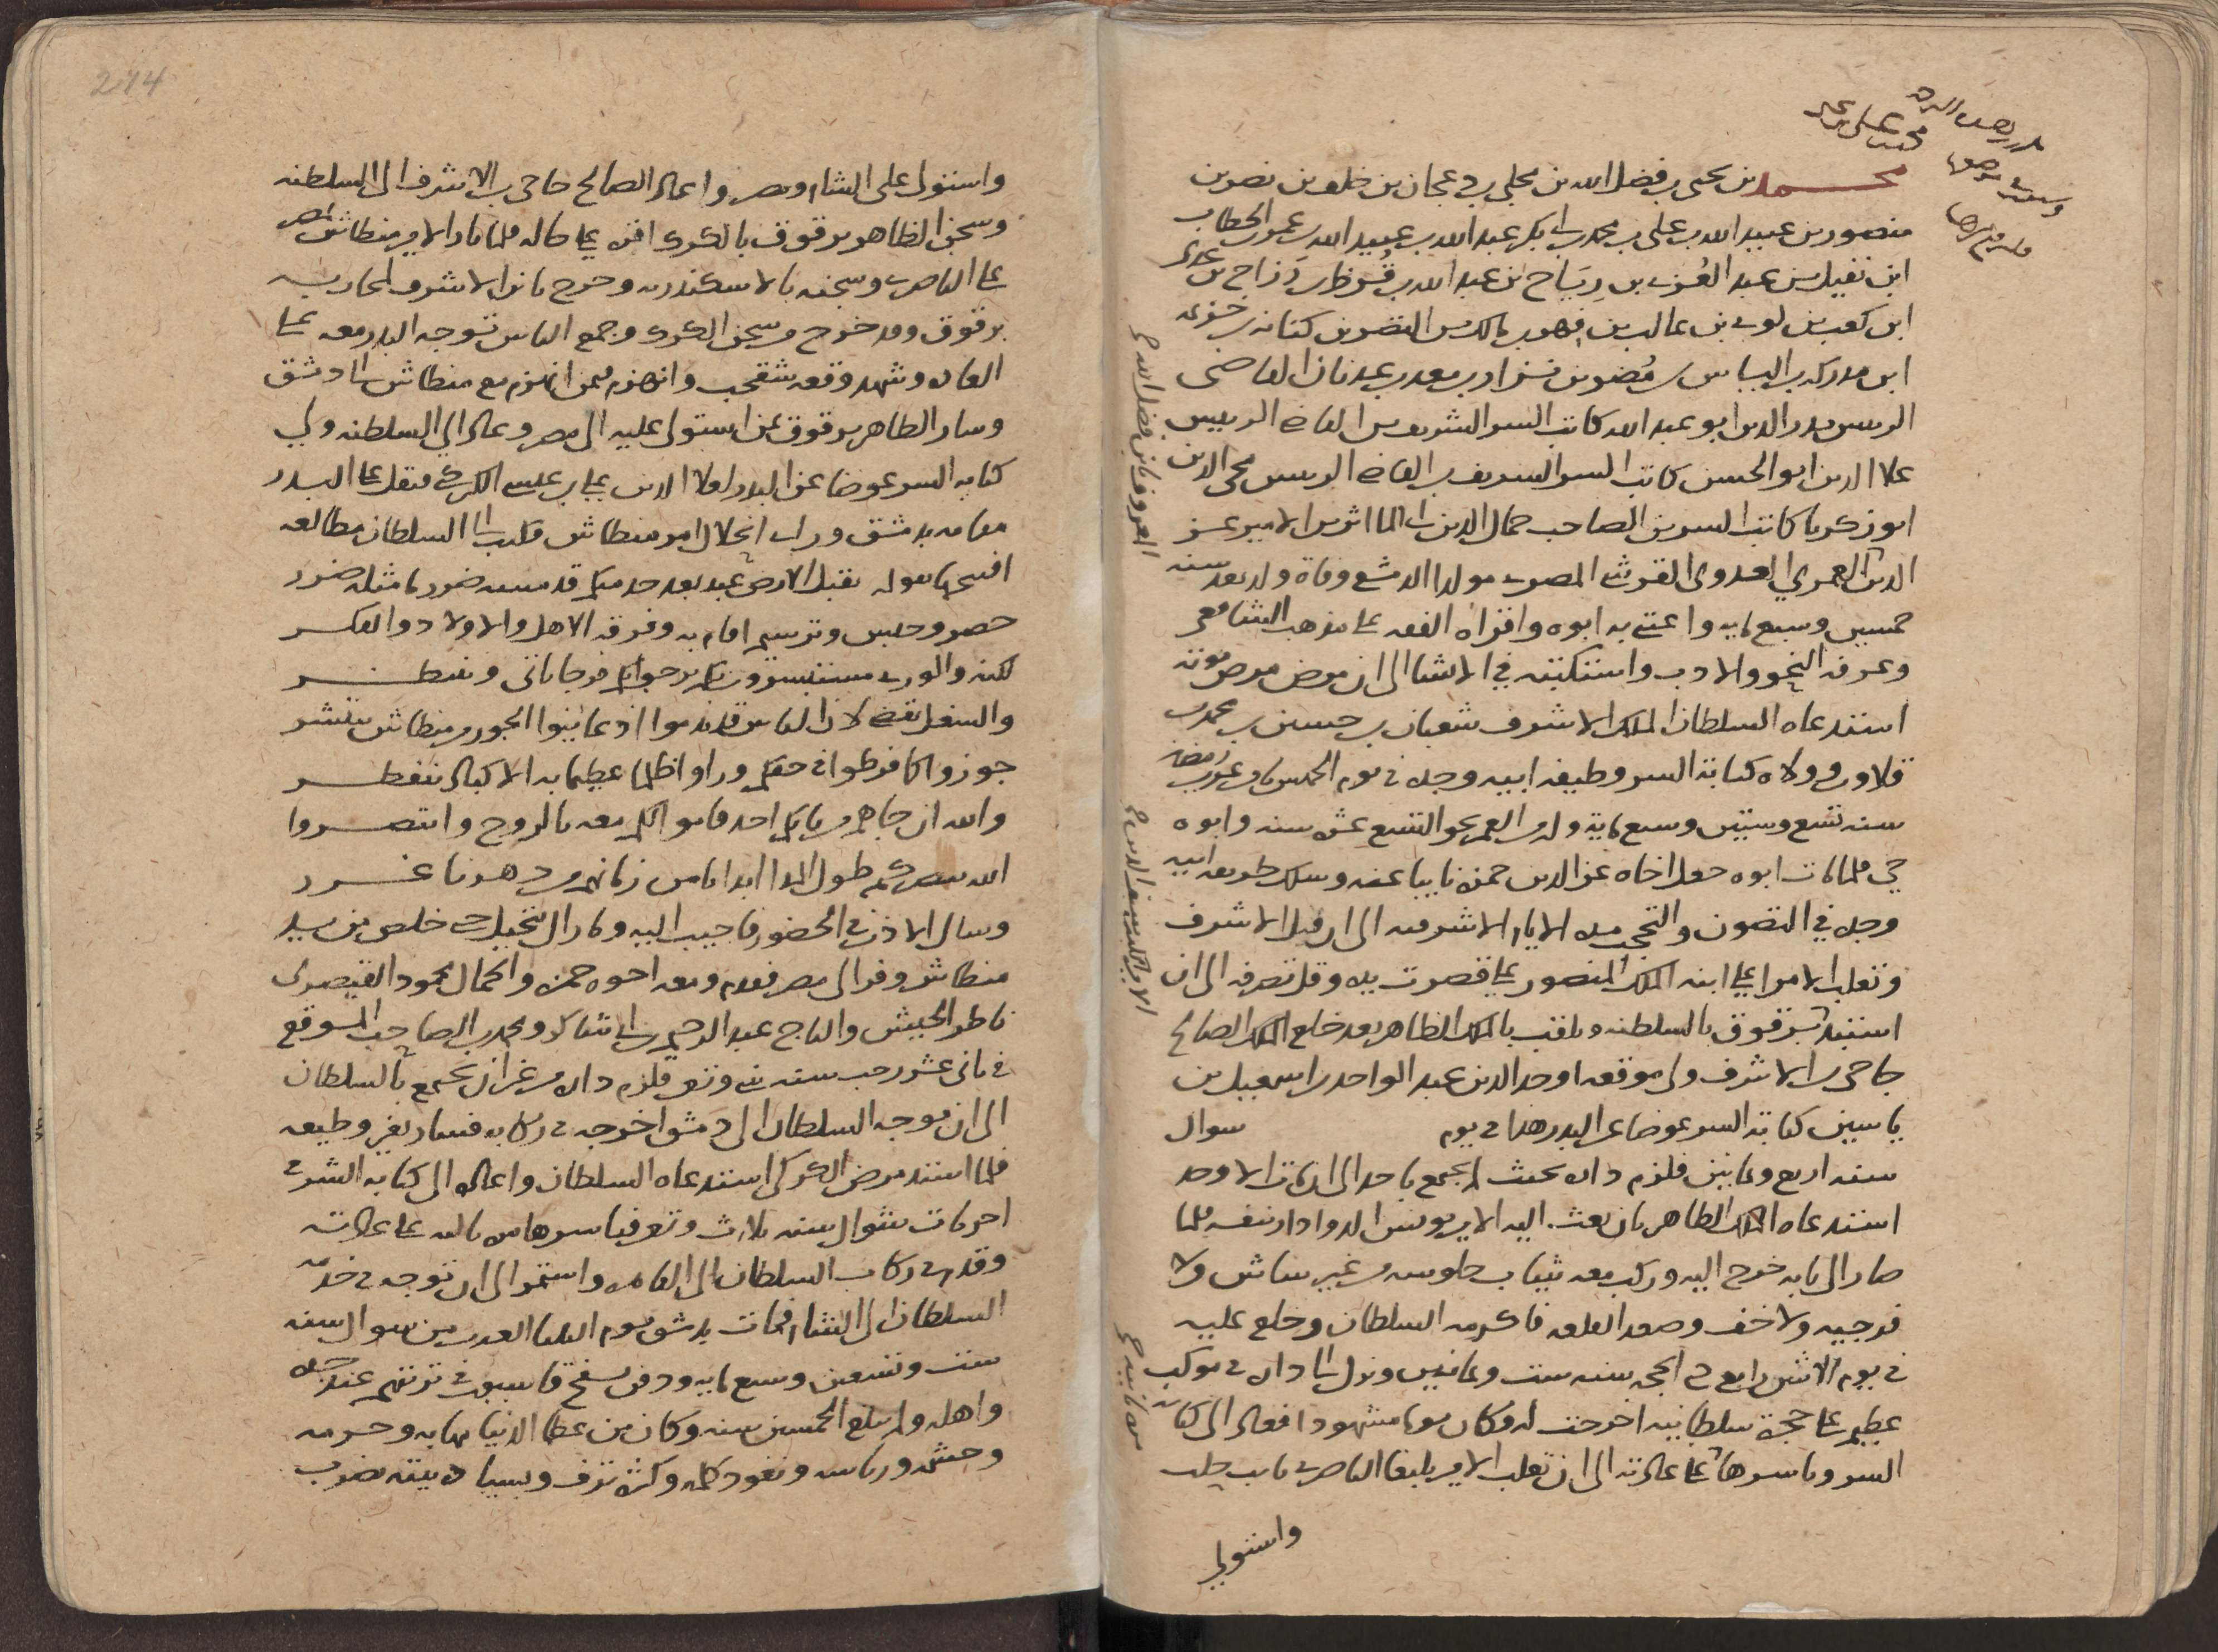 محمد بن يحيى بن فضل الله بن مجلي بن دعجان بن خلف بن نصر بن
منصور بن عبيد الله بن علي بن محمد بن ابي بكر عبد الله بن عبيد الله بن عمر بن الخطاب
ابن نفيل بن عبد العزى بن رياح بن عبد الله بن قرط بن رزاح بن عدي
ابن كعب بن لوي بن غالب بن فهر بن مالك بن النضر بن كنانه بن خزيمه
ابن مدركه بن الياس بن مضر بن نزار بن معد بن عدنان القاضي
الرييس بدر الدين ابو عبد الله كاتب السر الشريف بن القاضي الرييس
علا الدين ابو الحسن كاتب السر الشريف بن القاضي الرييس محي الدين
ابو زكريا كاتب السر بن الصاحب جمال الدين ابي الماثر بن الامير عز
الدين العمري العدوي القرشي المصري مولدا الدمشقي وفاة ولد بعد سنه
خمسين وسبع مايه واعتنى به ابوه واقراه الفقه على مذهب الشافعي
وعرف النحو والادب واستكتبه في الانشا الى ان مرض مرض موته
استدعاه السلطان الملك الاشرف شعبان بن حسين بن محمد بن
قلاوون وولاه كتابة السر وظيفه ابيه وجده في يوم الخميس عشرين رمضان
سنه تسع وستين وسبع مايه وله من العمر نحو التسع عشره سنه وابوه
حي فلما مات ابوه جعل اخاه عز الدين حمزه نايبا عنه وسلك طريقه ابيه
وجده في التصون والتحجب مده الايام الاشرفيه الى ان قتل الاشرف
وتغلب الامرا على ابنه الملك المنصور علي فقصرت يده وقل تصرفه الى ان
استبد برقوق بالسلطنه وتلقب بالملك الظاهر بعد خلع الملك الصالح
حاجي بن الاشرف ولى موقعه اوحد الدين عبد الواحد بن اسمعيل بن
ياسين كتابة السر عوضا عن البدر هذا في يوم سوال
سنه اربع وثمانين فلزم داره بحيث لم يجتمع باحد الى ان مات الاوحد
استدعاه الملك الظاهر بان بعث اليه الامير يونس الدوادار بنفسه فلما
صار الى بابه خرج اليه وركب معه بثياب جلوسه من غير شاش ولا
فرجيه ولا خف وصعد القلعه فاكرمه السلطان وخلع عليه
في يوم الاثنين رابع ذي الحجه سنه ست وثمانين ونزل الى داره في موكب
عظيم على حجرة سلطانيه اخرجت له وكان يوما مشهودا فعاد الى كتابه
السر وباشرها على عادته الى ان تغلب الامير يلبغا الناصري نايب حلب
واستولى
واستولى على الشام ومصر واعاد الصالح حاجي بن الاشرف الى السلطنه
وسجن الظاهر برقوق بالكرك اقره على حاله فلما ثار الامير منطاش بمصر
على الناصري وسجنه بالاسكندريه وخرج بالاشرف لمحاربه
برقوق وقد خرج من سجن الكرك وجمع الناس توجه البدر معه على
العاده وشهد وقعه شقحب وانهزم فيمن انهزم مع منطاش الى دمشق
وسار الظاهر برقوق بمن استولى عليه الى مصر وعاد الى السلطنه وولي
كتابه السر عوضا عن البدر لعلا الدين علي بن عيسى الكركي فثقل على البدر
مقامه بدمشق وراى انحلال امر منطاش فكتب الى السلطان مطالعه
افتتحها بقوله يقبل الارض عبد بعد خدمتكم قد مسه ضرر ما مثله ضرر
حصر وحبس وترسيم اقام به وفرقه الاهل والاولاد والفكر
لكنه والورى مستبشرون بكم يرجو بكم فرجا ياتي وينتظر
والشغل يقضى لان الناس قد ندموا اذ عاينوا الجور من منطاش ينتشر
جوزوا كما فرطوا في حقكم وراوا ظلما عظيما به الاكباد تنفطر
والله ان جاهم من بابكم احد قاموا لكم معه بالروح وانتصروا
الله ينصركم طول المدا ابدا يا من زمانهم من دهرنا غرر
وسال الاذن في الحضور فاجيب اليه وما زال يتحيل حتى خلص من يد
منطاش وفر الى مصر فقدم ومعه اخوه حمزه والجمال محمود القيصري
ناظر الجيش والتاج عبد الرحيم بن ابي شاكر ومحمد بن الصاحب الموقع
في ثاني عشر رجب سنه اثنتين وتسعين فلزم داره من غير ان يجتمع بالسلطان
الى ان توجه السلطان الى دمشق اخرجه في ركابه فسار بغير وظيفه
فلما اشتد مرض الكركي استدعاه السلطان واعاده الى كتابه السر في
اخريات شوال سنه ثلاث وتسعين فباشرها من ثالثه على عادته
وقدم في ركاب السلطان الى القاهره واستمر الى ان توجه في خدمه
السلطان الى الشام فمات بدمشق يوم الثلثا العشرين من سوال سنه
ست وتسعين وسبع مايه ودفن بسفح قاسيون في تربتهم عند جده
واهله ولم يبلغ الخمسين سنه وكان من عظما الدنيا مهابه وحرمه
وحشمه ورياسه ونفوذ كلمه وكثره ترف وبسياده بيته يضرب
214
المعروف بابن فضل الله